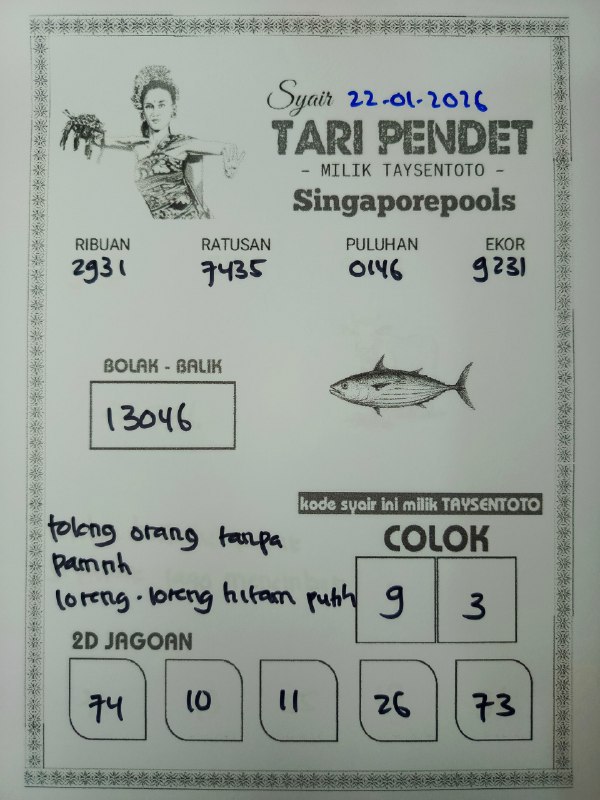 Syair 22-01-2026
TARI PENDET
- MILIK TAYSENTOTO -
Singaporepools
RIBUAN RATUSAN PULUHAN EKOR
2931 7435 0146 9231
BOLAK - BALIK
13046
kode syair ini milik TAYSENTOTO
COLOK
9 3
tolong orang tanpa
pamrih
loreng-loreng hitam putih
2D JAGOAN
74 10 11 26 73